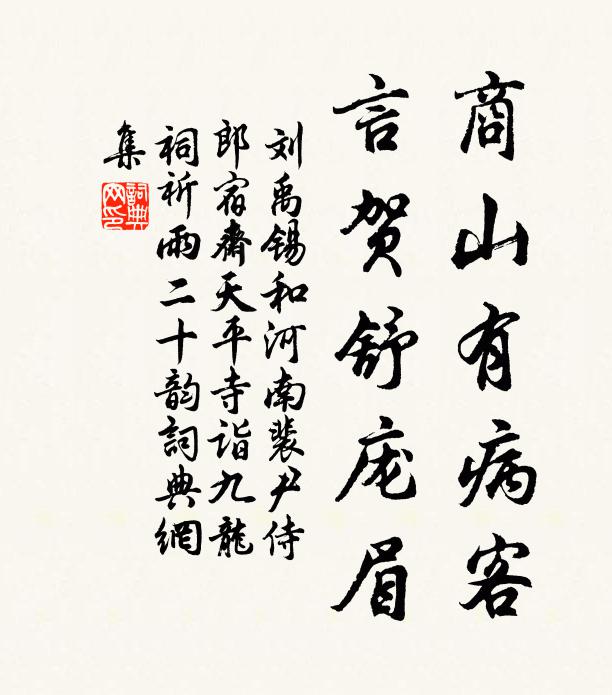 商山有病客
言贺舒庞眉
刘禹锡和河南裴尹侍
郎宿齋天平寺诣九龍
祠祈雨二十韵詞典網
集
詞典
网印